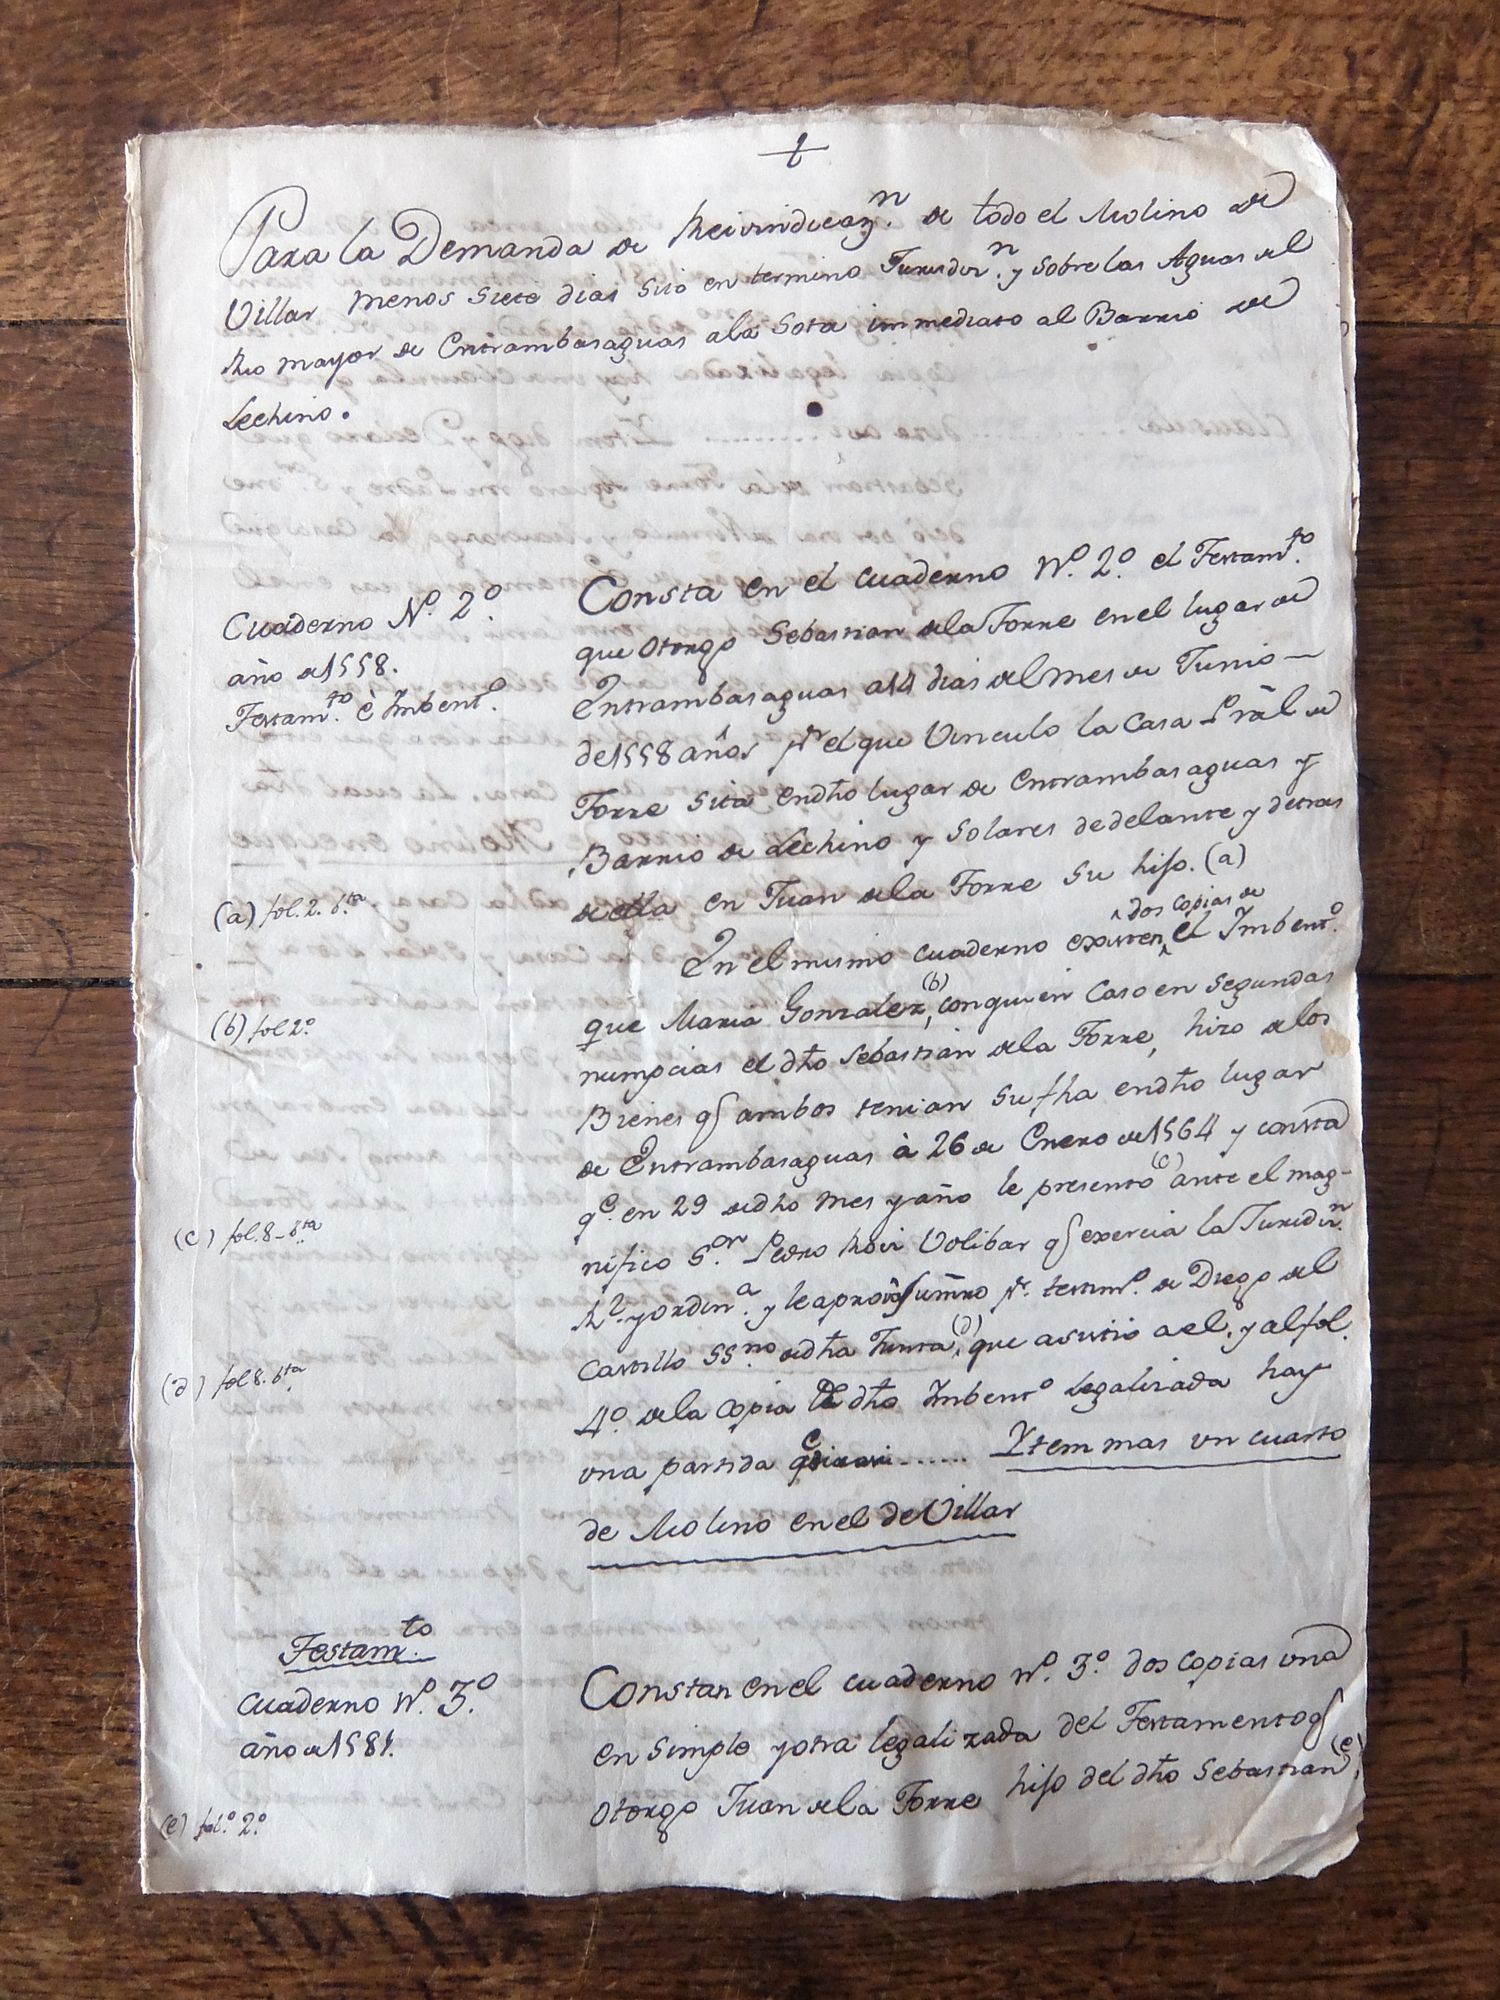 Para la Demanda de Reivindicazn. de todo el Molino de
Villar menos siete dias sito en termino Jurisdizn. y sobre las Aguas del
Rio mayor de Entrambasaguas a la Sota immediato al Barrio de
Lechino.
Cuaderno No. 2o.
año de 1558.
Testamto. è Imbento.
Consta en el cuaderno No. 2o. el Testamto.
que otorgo Sebastian de la Torre en el lugar de
Entrambasaguas a 14 dias del mes de Junio
de 1558 años pr. el que Vinculo la Casa Prāl de
Torre sita en dho lugar de Entrambasaguas y
Barrio de Lechino y Solares de delante y detras
de ella en Juan de la Torre su hijo. (a)
(a) fol. 2. bta
En el mismo cuaderno existen dos copias de el Imbento.
que Maria Gonzalez, (b) con quien Caso en segundas
(b) fol 2o.
numpcias el dho Sebastian de la Torre, hizo de los
Bienes q ambos tenian su fha en dho lugar
de Entrambasaguas à 26 de Enero de 1564 y consta
qe. en 29 de dho mes y año le presento (c) ante el mag-
(c) fol. 8-bta
nifico Sor. Pedro Volibar q exercia la Juridin.
Rl. y ordina. y le aprovò pr. testimo. de Diego del
Castillo SSno. de dha Junta, (d) que asistio a el. y al fol.
(d) fol 8. bta
4o. de la copia de dho Imbento legalizada hay
una partida Ytem mas un cuarto
de Molino en el de Villar
Testamto.
Cuaderno No. 3o.
año de 1581.
Constan en el cuaderno No. 3o. dos copias una
en simple y otra legalizada del Testamento q
otorgo Juan de la Torre hijo del dho Sebastian, (e)
(e) folo. 2o.